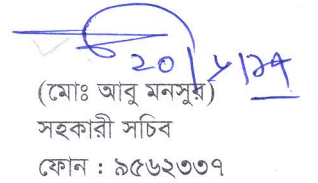 (মোঃ আবু মনসুর)
সহকারী সচিব
ফোন : ৯৫৬২৩৩৭